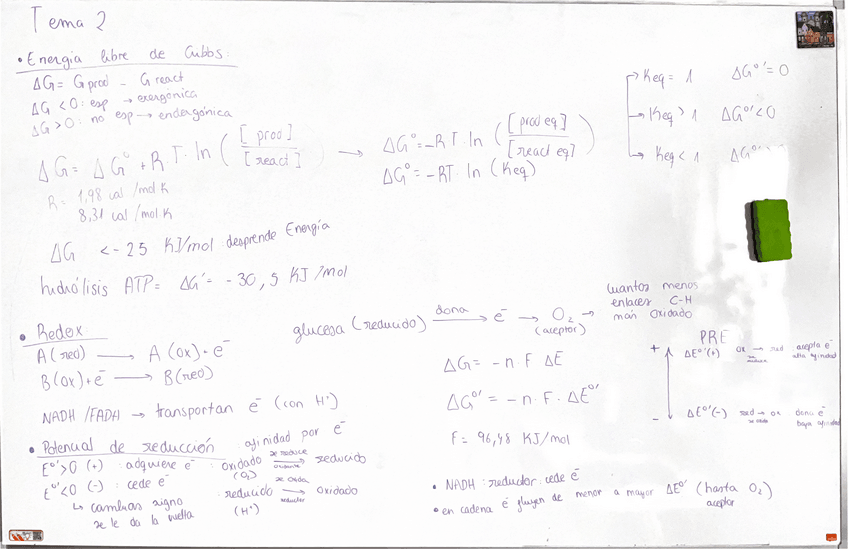 Tema 2
• Energía libre de Gibbs:
ΔG = G prod - G react
ΔG < 0: esp → exergónica
ΔG > 0: no esp → endergónica
ΔG = ΔG° + R.T. ln ([prod] / [react]) → ΔG° = -RT ln ([prod eq] / [react eq])
ΔG° = -RT. ln (Keq)
R = 1,98 cal /mol.K
8,31 cal /mol.K
Keq = 1 ΔG°' = 0
Keq > 1 ΔG°' < 0
Keq < 1 ΔG°'
ΔG < -25 KJ/mol desprende Energía
hidrólisis ATP = ΔG' = -30,5 KJ/mol
• Redox:
A (red) → A (ox) + e⁻
B (ox) + e⁻ → B (red)
NADH /FADH → transportan e⁻ (con H⁺)
glucosa (reducido) dona → e⁻ → O₂ →
(aceptor)
cuantos menos
enlaces C-H
más oxidado
ΔG = -n F ΔE
ΔG°' = -n. F. ΔE°'
F = 96,48 KJ/mol
PRE
+ ΔE°'(+) ox → red acepta e⁻
se reduce alta afinidad
- ΔE°'(-) red → ox dona e⁻
se oxida baja afinidad
• Potencial de reducción: afinidad por e⁻
E°' > 0 (+): adquiere e⁻: oxidado se reduce → reducido
(O₂) oxidante
E°' < 0 (-): cede e⁻: reducido se oxida → oxidado
(H⁺) reductor
↳ cambias signo
se le da la vuelta
• NADH: reductor: cede e⁻
• en cadena e⁻ fluyen de menor a mayor ΔE°' (hasta O₂)
aceptor